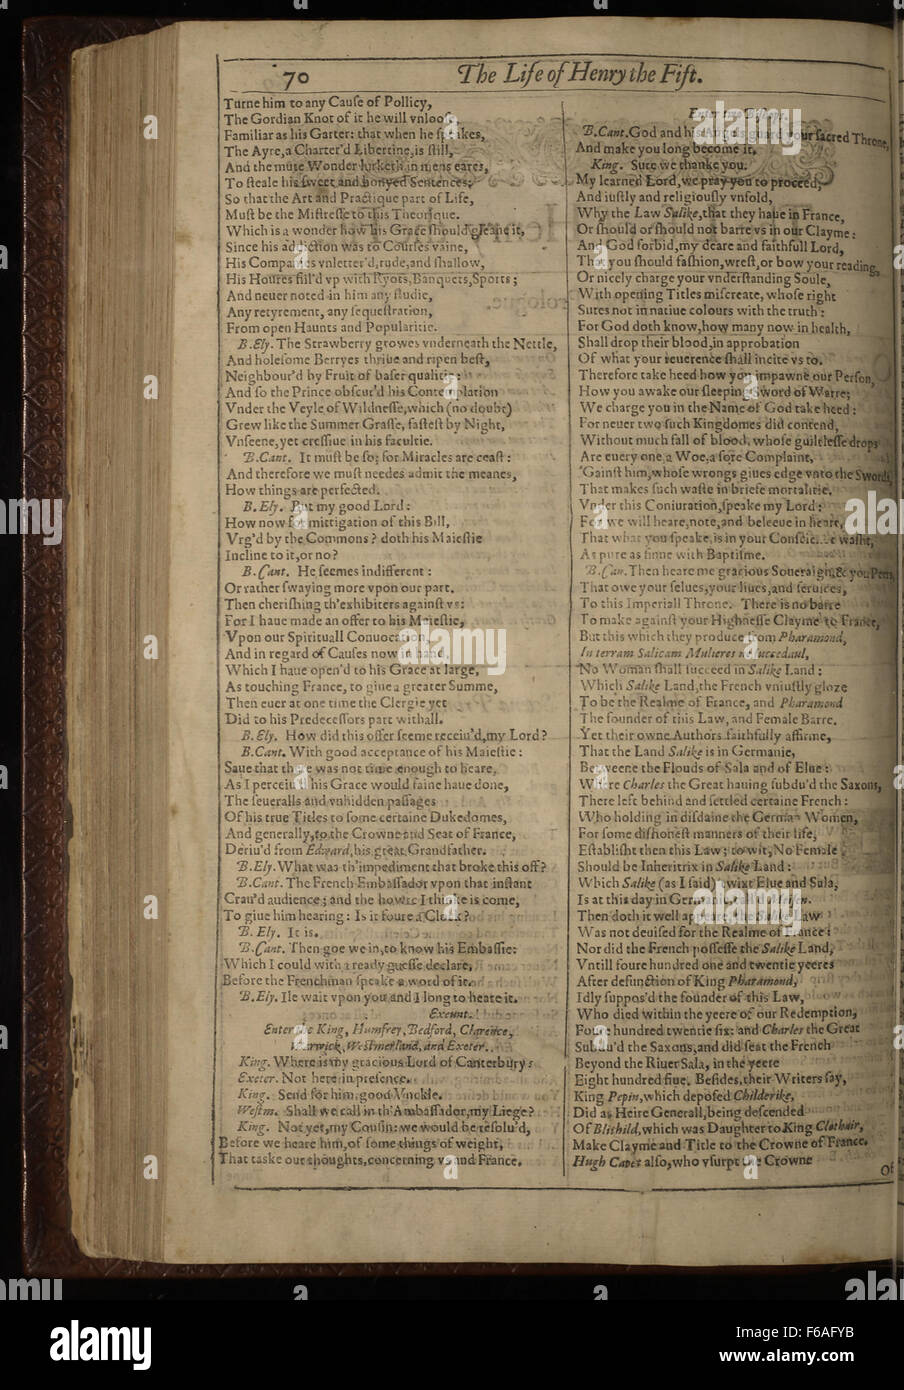 70
The Life of Henry the Fift.
Turne him to any Cauſe of Pollicy,
The Gordian Knot of it he will vnlooſe,
Familiar as his Garter: that when he ſpeakes,
The Ayre, a Charter'd Libertine, is ſtill,
And the mute Wonder lurketh in mens eares,
To ſteale his ſweet and honyed Sentences:
So that the Art and Practique part of Life,
Muſt be the Miſtreſſe to this Theorique.
Which is a wonder how his Grace ſhould gleane it,
Since his addiction was to Courſes vaine,
His Companies vnletter'd, rude, and ſhallow,
His Houres fill'd vp with Ryots, Banquets, Sports;
And neuer noted in him any ſtudie,
Any retyrement, any ſequeſtration,
From open Haunts and Popularitie.
B. Ely. The Strawberry growes vnderneath the Nettle,
And holeſome Berryes thriue and ripen beſt,
Neighbour'd by Fruit of baſer qualitie:
And ſo the Prince obſcur'd his Contemplation
Vnder the Veyle of Wildneſſe, which (no doubt)
Grew like the Summer Graſſe, faſteſt by Night,
Vnſeene, yet creſſiue in his facultie.
B. Cant. It muſt be ſo; for Miracles are ceaſt:
And therefore we muſt needes admit the meanes,
How things are perfected.
B. Ely. But my good Lord:
How now for mittigation of this Bill,
Vrg'd by the Commons? doth his Maieſtie
Incline to it, or no?
B. Cant. He ſeemes indifferent:
Or rather ſwaying more vpon our part,
Then cheriſhing th'exhibiters againſt vs:
For I haue made an offer to his Maieſtie,
Vpon our Spirituall Conuocation,
And in regard of Cauſes now in hand,
Which I haue open'd to his Grace at large,
As touching France, to giue a greater Summe,
Then euer at one time the Clergie yet
Did to his Predeceſſors part withall.
B. Ely. How did this offer ſeeme receiu'd, my Lord?
B. Cant. With good acceptance of his Maieſtie:
Saue that there was not time enough to heare,
As I perceiu'd his Grace would faine haue done,
The ſeueralls and vnhidden paſſages
Of his true Titles to ſome certaine Dukedomes,
And generally, to the Crowne and Seat of France,
Deriu'd from Edward, his great Grandfather.
B. Ely. What was th'impediment that broke this off?
B. Cant. The French Embaſſador vpon that inſtant
Crau'd audience; and the howre I thinke is come,
To giue him hearing: Is it foure a Clock?
B. Ely. It is.
B. Cant. Then goe we in, to know his Embaſſie:
Which I could with a ready gueſſe declare,
Before the Frenchman ſpeake a word of it.
B. Ely. Ile wait vpon you, and I long to heare it.
Exeunt.
Enter the King, Humfrey, Bedford, Clarence,
Warwick, Weſtmerland, and Exeter.
King. Where is my gracious Lord of Canterbury?
Exeter. Not here in preſence.
King. Send for him, good Vnckle.
Weſtm. Shall we call in th'Ambaſſador, my Liege?
King. Not yet, my Couſin: we would be reſolu'd,
Before we heare him, of ſome things of weight,
That taske our thoughts, concerning vs and France.
Enter two Biſhops.
B. Cant. God and his Angels guard your ſacred Throne,
And make you long become it.
King. Sure we thanke you.
My learned Lord, we pray you to proceed,
And iuſtly and religiouſly vnfold,
Why the Law Salike, that they haue in France,
Or ſhould or ſhould not barre vs in our Clayme:
And God forbid, my deare and faithfull Lord,
That you ſhould faſhion, wreſt, or bow your reading,
Or nicely charge your vnderſtanding Soule,
With opening Titles miſcreate, whoſe right
Sutes not in natiue colours with the truth:
For God doth know, how many now in health,
Shall drop their blood, in approbation
Of what your reuerence ſhall incite vs to.
Therefore take heed how you impawne our Perſon,
How you awake our ſleeping Sword of Warre;
We charge you in the Name of God take heed:
For neuer two ſuch Kingdomes did contend,
Without much fall of blood, whoſe guiltleſſe drops
Are euery one, a Woe, a ſore Complaint,
'Gainſt him, whoſe wrongs giues edge vnto the Swords,
That makes ſuch waſte in briefe mortalitie.
Vnder this Coniuration, ſpeake my Lord:
For we will heare, note, and beleeue in heart,
That what you ſpeake, is in your Conſcience waſht,
As pure as ſinne with Baptiſme.
B. Can. Then heare me gracious Soueraign, & you Peers,
That owe your ſelues, your liues, and ſeruices,
To this Imperiall Throne. There is no barre
To make againſt your Highneſſe Clayme to France,
But this which they produce from Pharamond,
In terram Salicam Mulieres ne ſuccedaul,
No Woman ſhall ſucceed in Salike Land:
Which Salike Land, the French vniuſtly gloze
To be the Realme of France, and Pharamond
The founder of this Law, and Female Barre.
Yet their owne Authors faithfully affirme,
That the Land Salike is in Germanie,
Betweene the Flouds of Sala and of Elue:
Where Charles the Great hauing ſubdu'd the Saxons,
There left behind and ſettled certaine French:
Who holding in diſdaine the German Women,
For ſome diſhoneſt manners of their life,
Eſtabliſht then this Law; to wit, No Female
Should be Inheritrix in Salike Land:
Which Salike (as I ſaid) 'twixt Elue and Sala,
Is at this day in Germanie, call'd Meiſen.
Then doth it well appeare, the Salike Law
Was not deuiſed for the Realme of France:
Nor did the French poſſeſſe the Salike Land,
Vntill foure hundred one and twentie yeeres
After defunction of King Pharamond,
Idly ſuppos'd the founder of this Law,
Who died within the yeere of our Redemption,
Foure hundred twentie ſix: and Charles the Great
Subdu'd the Saxons, and did ſeat the French
Beyond the Riuer Sala, in the yeere
Eight hundred fiue. Beſides, their Writers ſay,
King Pepin, which depoſed Childerike,
Did as Heire Generall, being deſcended
Of Blithild, which was Daughter to King Clothair,
Make Clayme and Title to the Crowne of France.
Hugh Capet alſo, who vſurpt the Crowne
Of
alamy
a
alamy stock photo
F6AFYB
www.alamy.com